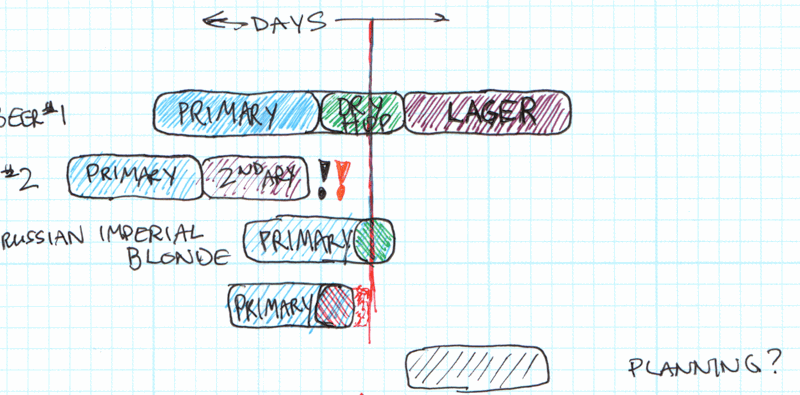 DAYS
BEER #1
PRIMARY
DRY HOP
LAGER
#2
PRIMARY
2NDARY
!!
RUSSIAN IMPERIAL
BLONDE
PRIMARY
PRIMARY
PLANNING?